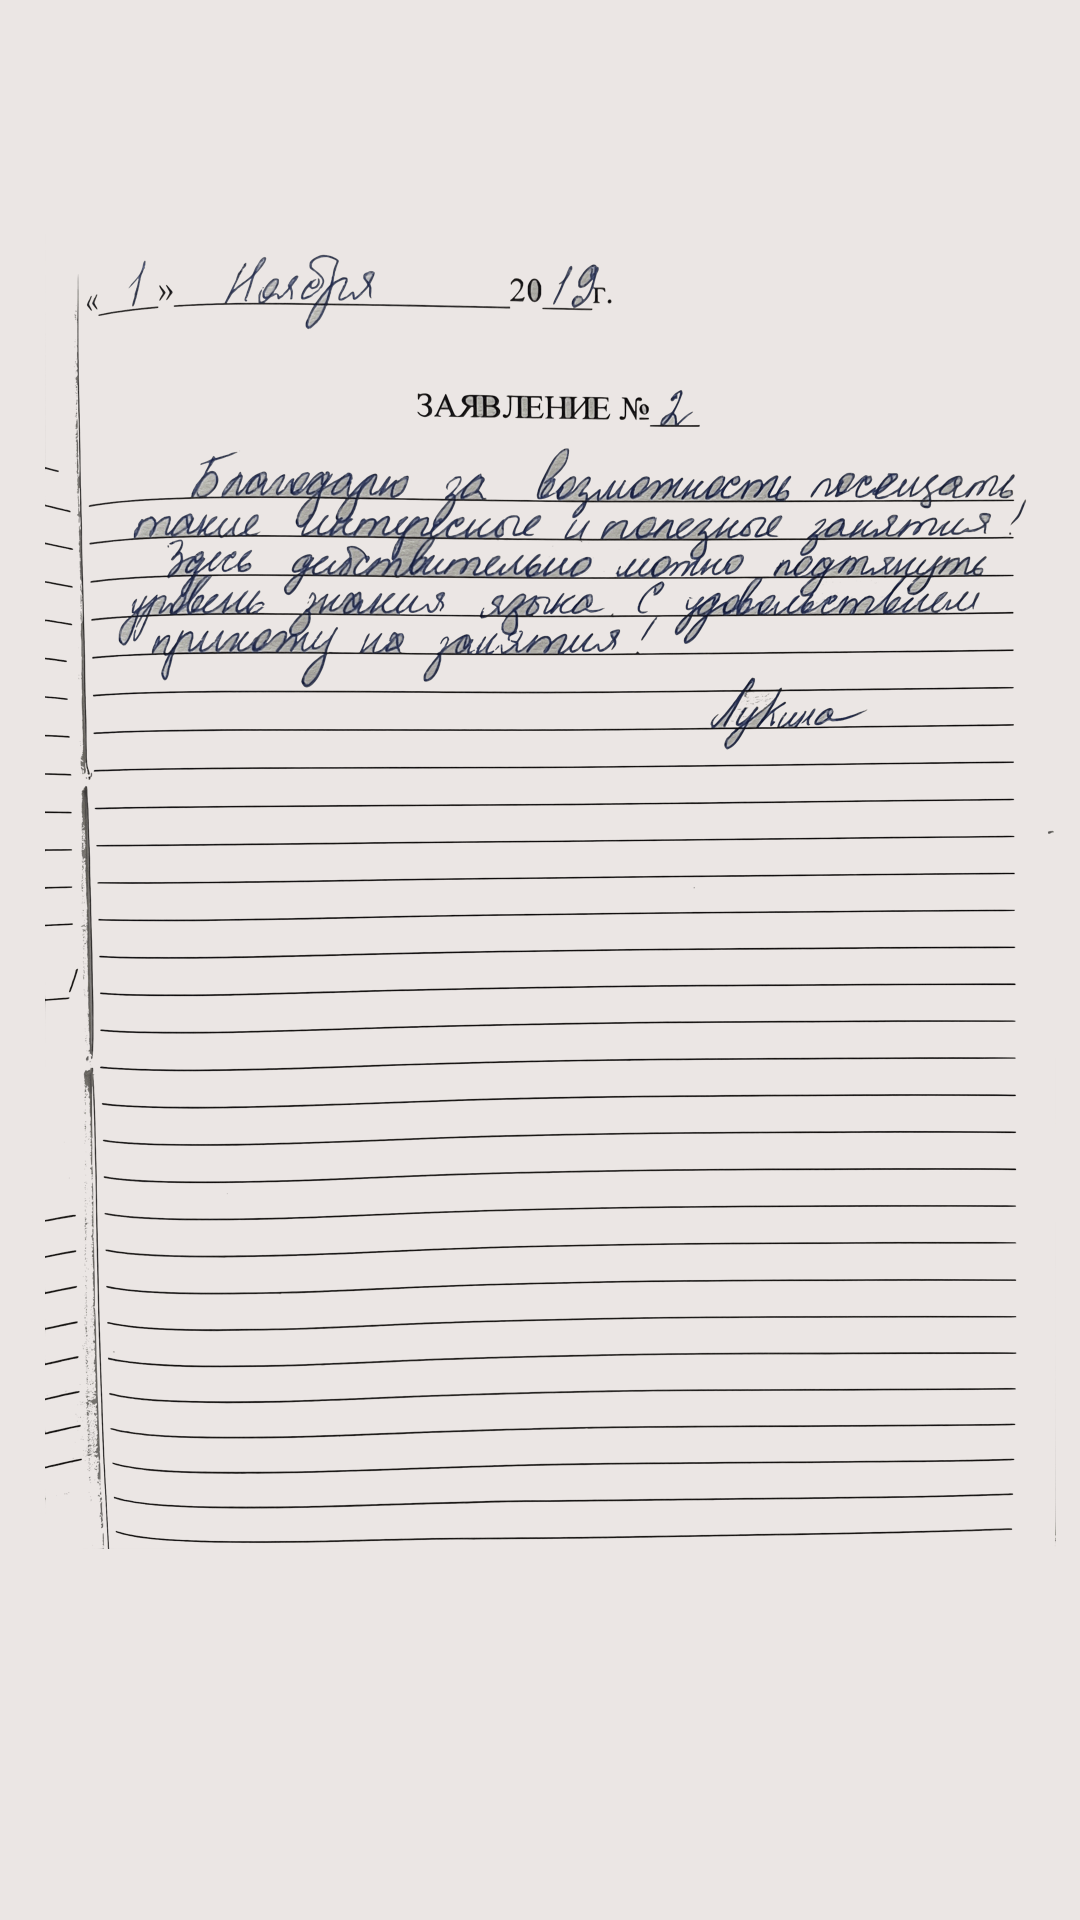 « 1 » Ноября 2019г.
ЗАЯВЛЕНИЕ № 2
Благодарю за возможность посещать
такие интересные и полезные занятия!
Здесь действительно можно подтянуть
уровень знания языка. С удовольствием
прихожу на занятия!
Лукина